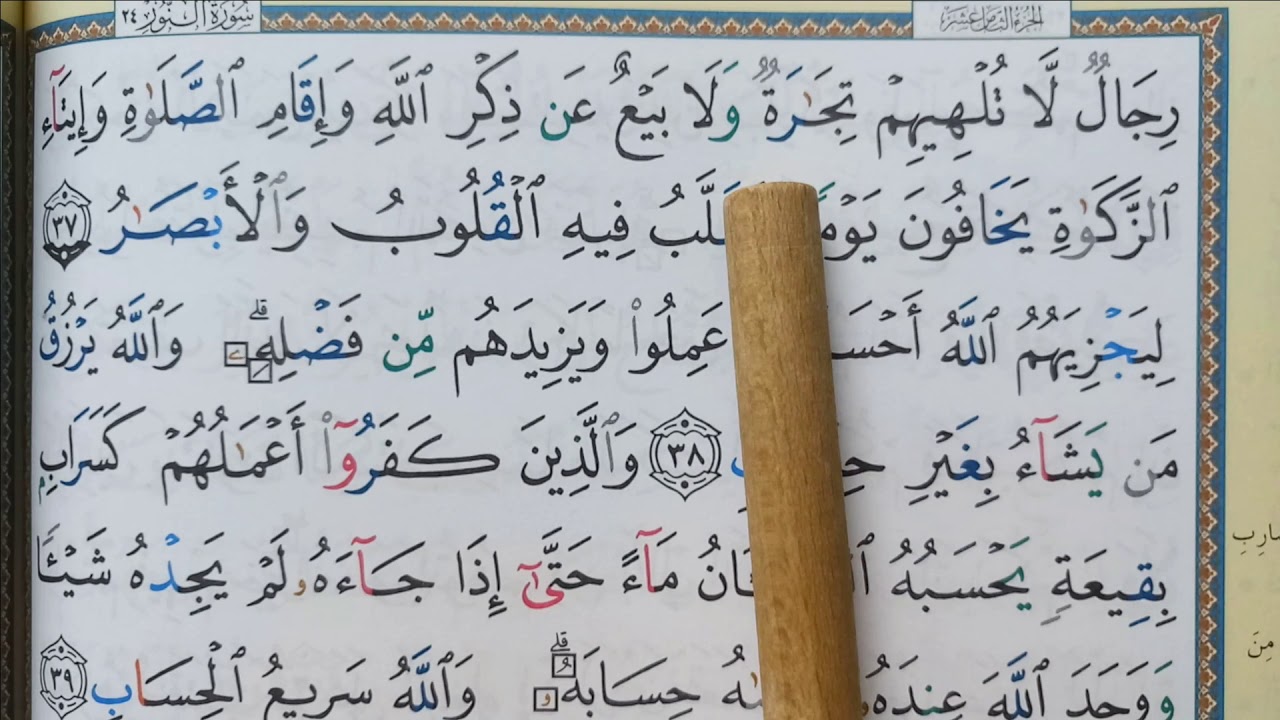 الجزء الثامن عشر
سورة النور ٢٤
رِجَالٌ لَّا تُلْهِيهِمْ تِجَٰرَةٌ وَلَا بَيْعٌ عَن ذِكْرِ ٱللَّهِ وَإِقَامِ ٱلصَّلَوٰةِ وَإِيتَآءِ
ٱلزَّكَوٰةِ يَخَافُونَ يَوْمًا فِيهِ ٱلْقُلُوبُ وَٱلْأَبْصَٰرُ ٣٧
لِيَجْزِيَهُمُ ٱللَّهُ عَمِلُوا۟ وَيَزِيدَهُم مِّن فَضْلِهِۦ ۗ وَٱللَّهُ يَرْزُقُ
مَن يَشَآءُ بِغَيْرِ ٣٨ وَٱلَّذِينَ كَفَرُوٓا۟ أَعْمَٰلُهُمْ كَسَرَابٍۭ
بِقِيعَةٍ يَحْسَبُهُ مَآءً حَتَّىٰٓ إِذَا جَآءَهُۥ لَمْ يَجِدْهُ شَيْـًٔا
وَوَجَدَ ٱللَّهَ عِندَهُۥ حِسَابَهُۥ ۗ وَٱللَّهُ سَرِيعُ ٱلْحِسَابِ ٣٩
مِنَ